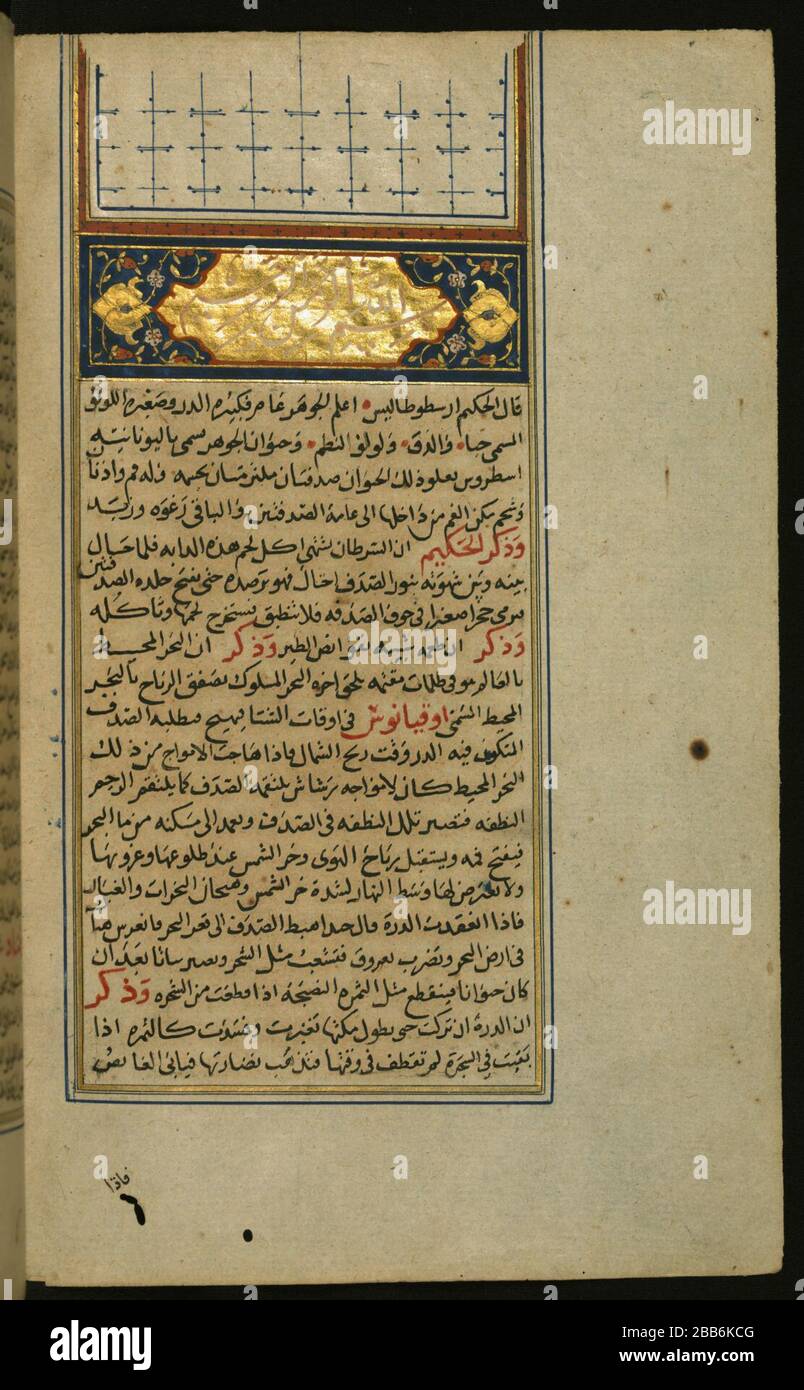 قال الحكيم ارسطوطاليس اعلم الجوهر عام فكبيره الدر وصغيره اللولؤ
المسمى حبا والدق ولولؤ النظم وحيوان الجوهر يسمى باليونانيه
اسطروس يعلو ذلك الحيوان صدفتان ملتزمتان بجسمه وله فم واذنا
وشحم يمكن الفم من داخلها الى عامة الصدفتين والباقى رغوه وزبد
وذكر الحكيم ان السرطان يشتهى اكل لحم هذه الدابه فلما حال
بينه وبين شهوته الصدف احتال فهو يرصده حتى يفتح جلده الصدفتين
فيرمى حجرا صغيرا فى جوف الصدفه فلا تنطبق فيستخرج لحمها وياكله
وذكر ان الطير وذكر ان البحر المحيط
بالعالم هو فى ظلمات يلى اخره البحر المسلوك يصفق الرياح بالبحر
المحيط المسمى اوقيانوس فى اوقات الشتا فيهيج فيطلبه الصدف
المتكون فيه الدر وقت ريح الشمال فاذا هاجت الامواج من ذلك
البحر المحيط كان لامواجه رشاش يلتقمه الصدف كما يلتقم الرحم
النطفه فتصير تلك النطفه فى الصدف ويعمد الى مسكنه من ما البحر
فيفتح فمه ويستقبل برياح الهوى وحر الشمس عند طلوعها وغروبها
ولا يعترض لها وسط النهار لشدة حر الشمس وهيجان البخارات والغبار
فاذا انعقدت الدرة اهبط الصدف الى قعر البحر فانغرس هنا
فى ارض البحر ويضرب بعروق فتشعب مثل الشجر ويصير نباتا بعد ان
كان حيوانا فينقطع مثل الثمره النضيجة اذا قطعت من الشجره وذكر
ان الدرة ان تركت حتى يطول مكثها تغيرت وفسدت كالثمره اذا
بقيت فى الشجرة لم تقطف فى وقتها فتذهب نضارتها فياتى الغايص
فاذا
alamy
Image ID: 2BB6KCG
www.alamy.com